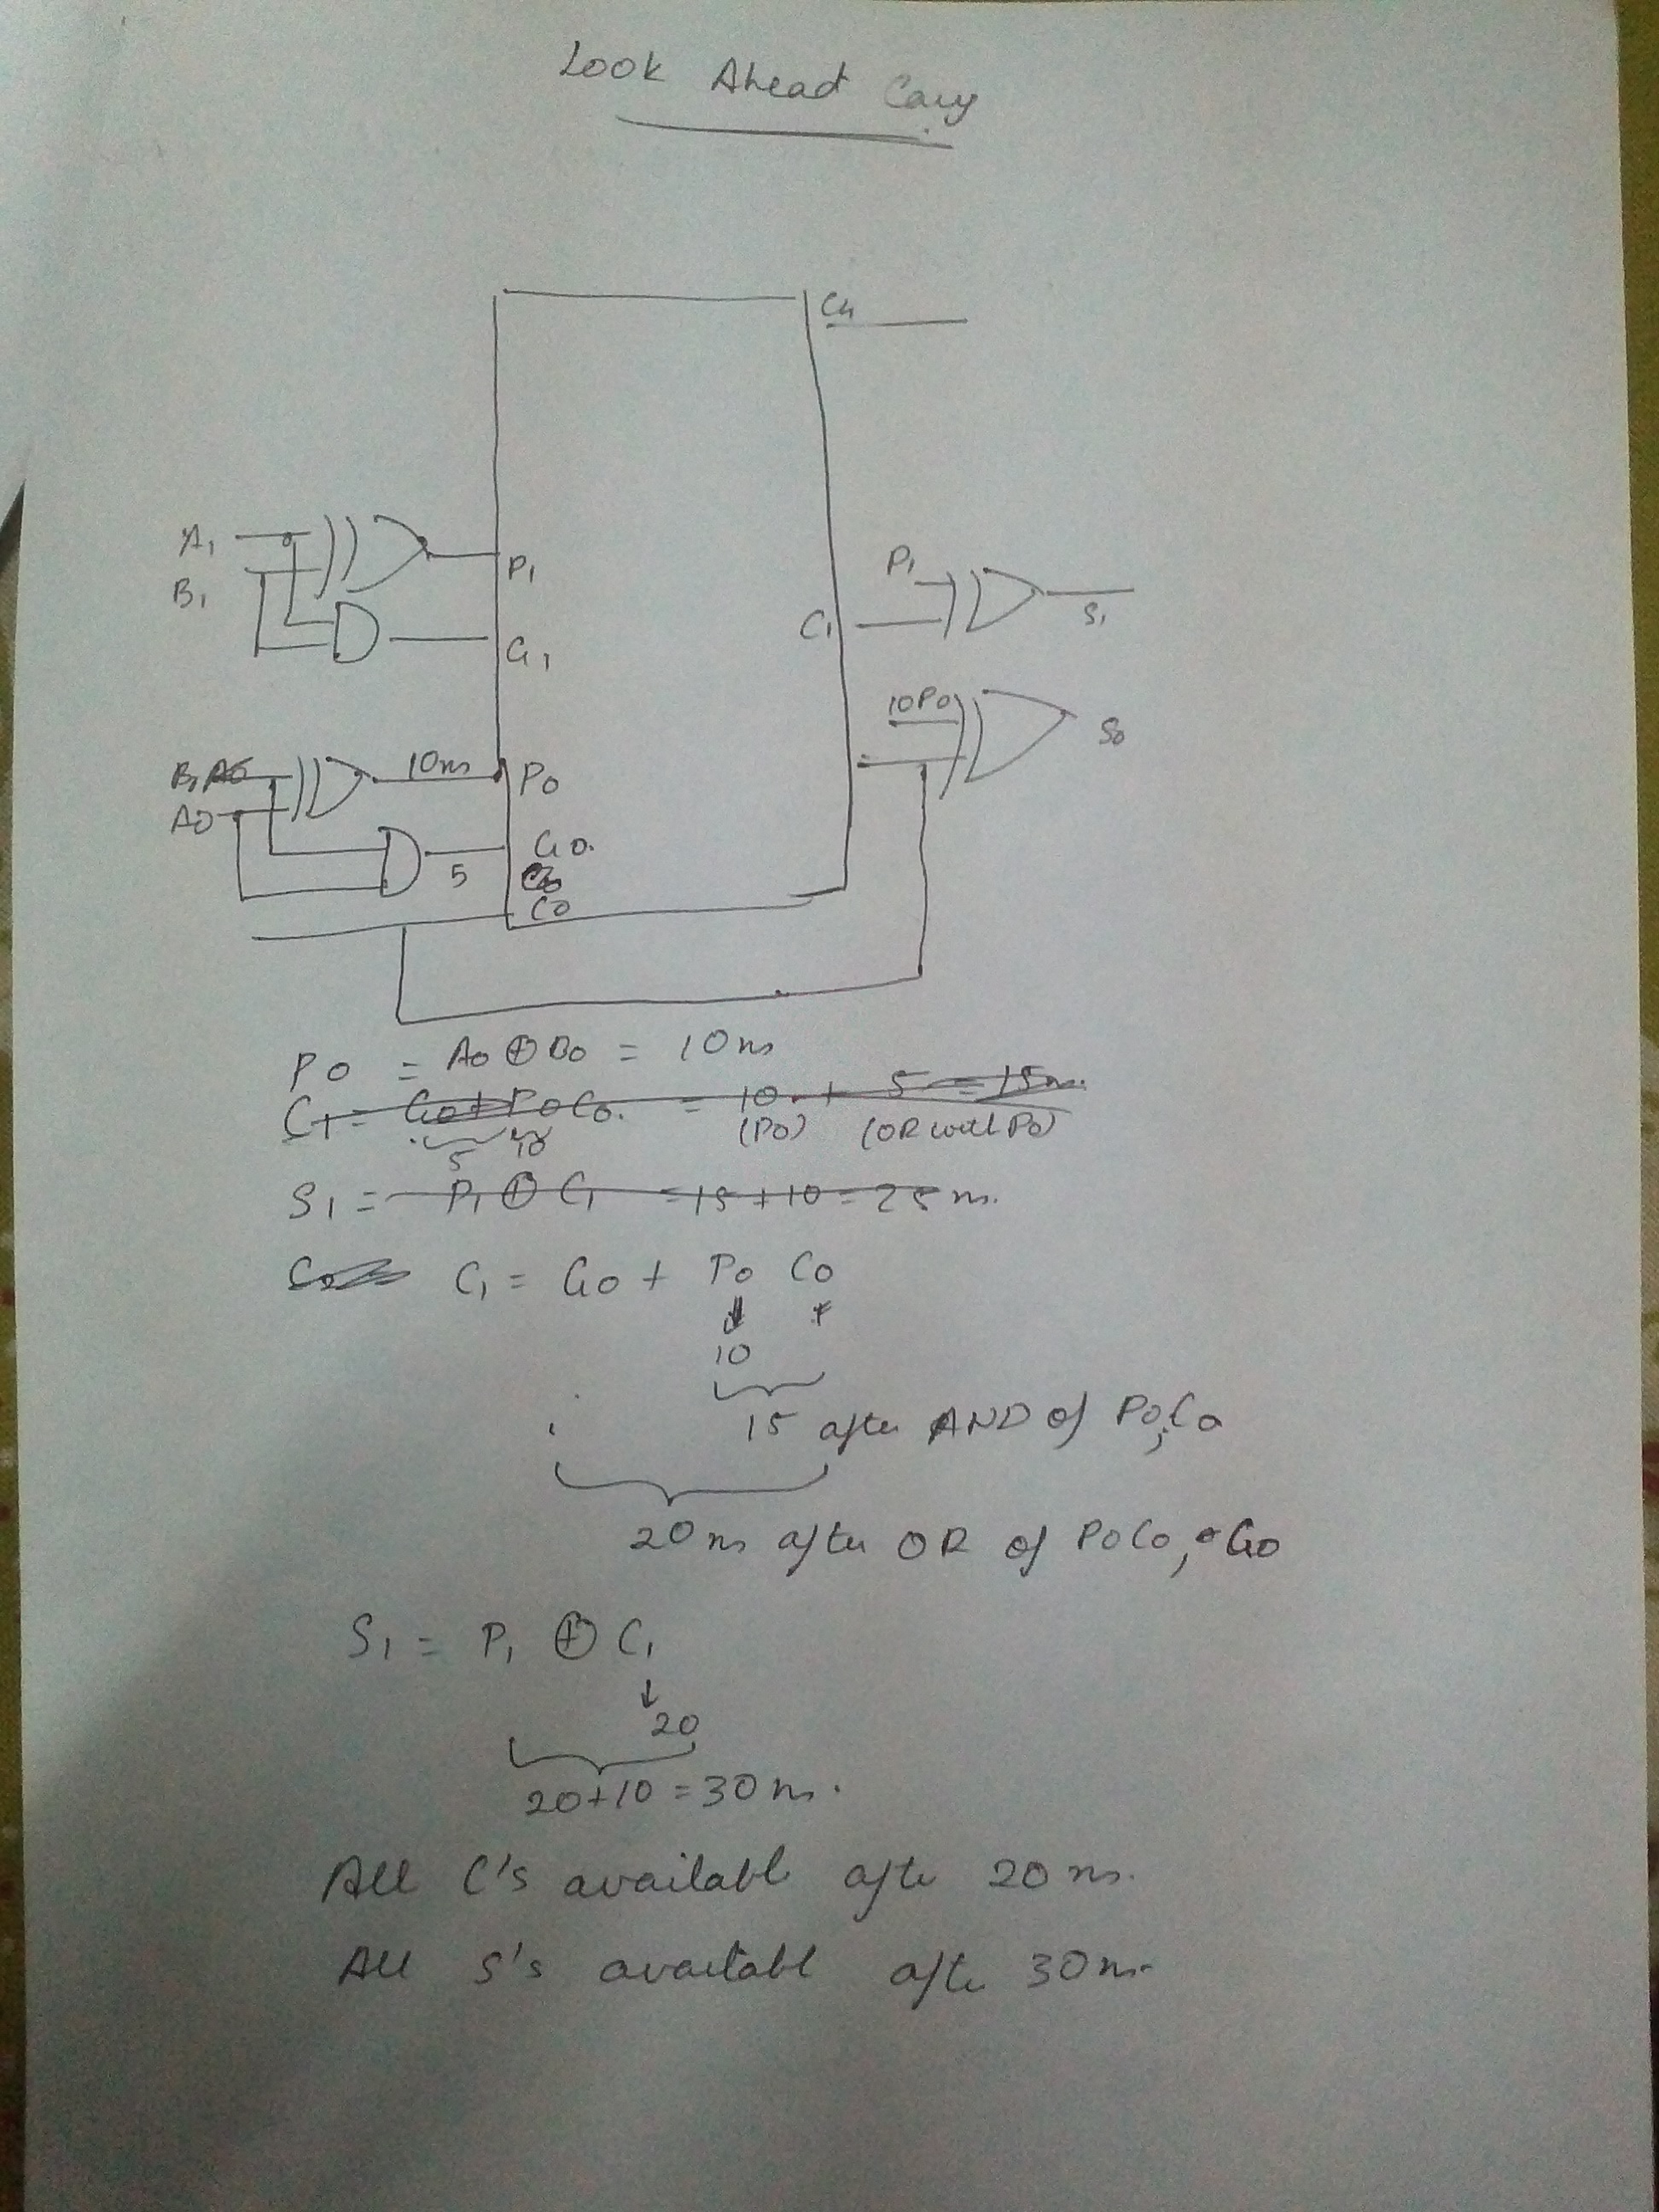 Look Ahead Cary
C4
A1
P1
P1
B1
C1
S1
G1
10P0
S0
10ns
P0
A0
G0.
5
C0
P0 = A0 ⊕ B0 = 10ns
C1 = G0 + P0 C0. = 10 + 5 = 15ns.
5 10 (P0) (OR with P0)
S1 = P1 ⊕ C1 = 15 + 10 = 25 ns.
C1 = G0 + P0 C0
10
15 after AND of P0, C0
20ns after OR of P0C0, G0
S1 = P1 ⊕ C1
20
20+10 = 30 ns.
All C's available after 20 ns.
All S's available after 30 ns.